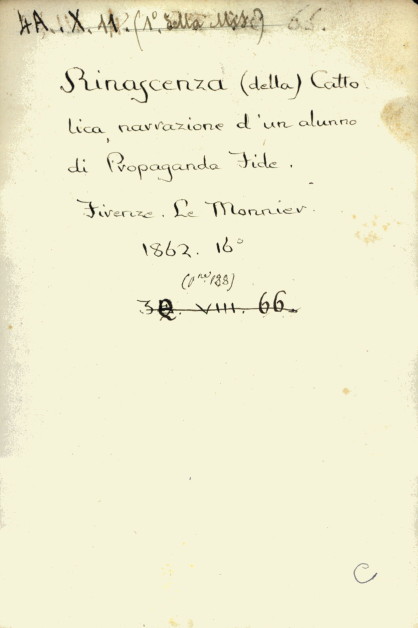 4A. IX. 11. (1° della Misc) 66.
Rinascenza (della) Catto
lica, narrazione d'un alunno
di Propaganda Fide.
Firenze. Le Monnier.
1862. 16°
3Q. VIII. 66.
C